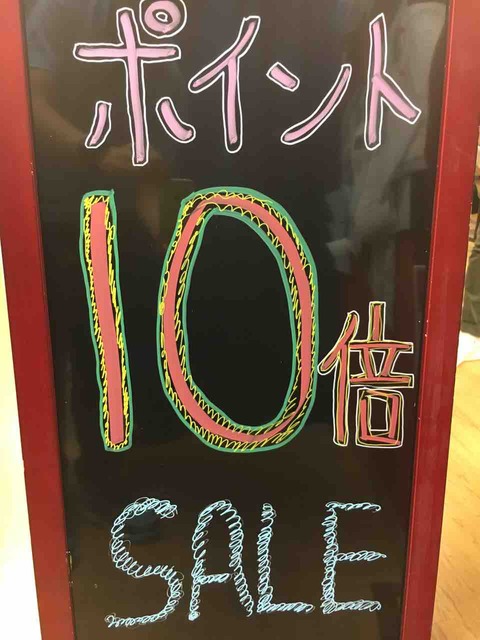 ポイント
10倍
SALE